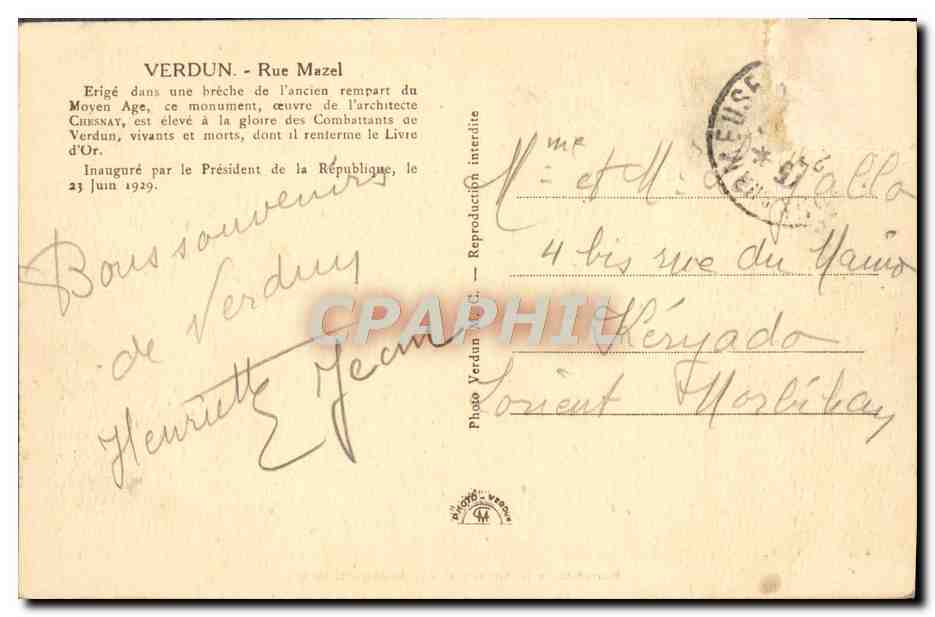 VERDUN. - Rue Mazel
Erigé dans une brèche de l'ancien rempart du
Moyen Age, ce monument, œuvre de l'architecte
CHESNAY, est élevé à la gloire des Combattants de
Verdun, vivants et morts, dont il renferme le Livre
d'Or.
Inauguré par le Président de la République, le
23 Juin 1929.
Bons souvenirs
de Verdun
Henriette & Jean
Photo Verdun N. C. — Reproduction interdite
PHOTO - VERDUN
CPAPHIL
MEUSE
15
Mme et Mr
4 bis rue du
Kéryado
Lorient Morbihan